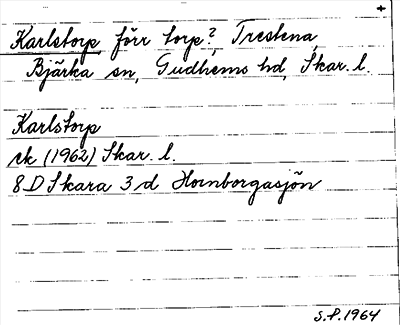 +
Karlstorp, förr torp?, Trestena,
Bjärka sn, Gudhems hd, Skar. l.
Karlstorp
ek (1962) Skar. l.
8D Skara 3 d Hornborgasjön
S.P. 1964